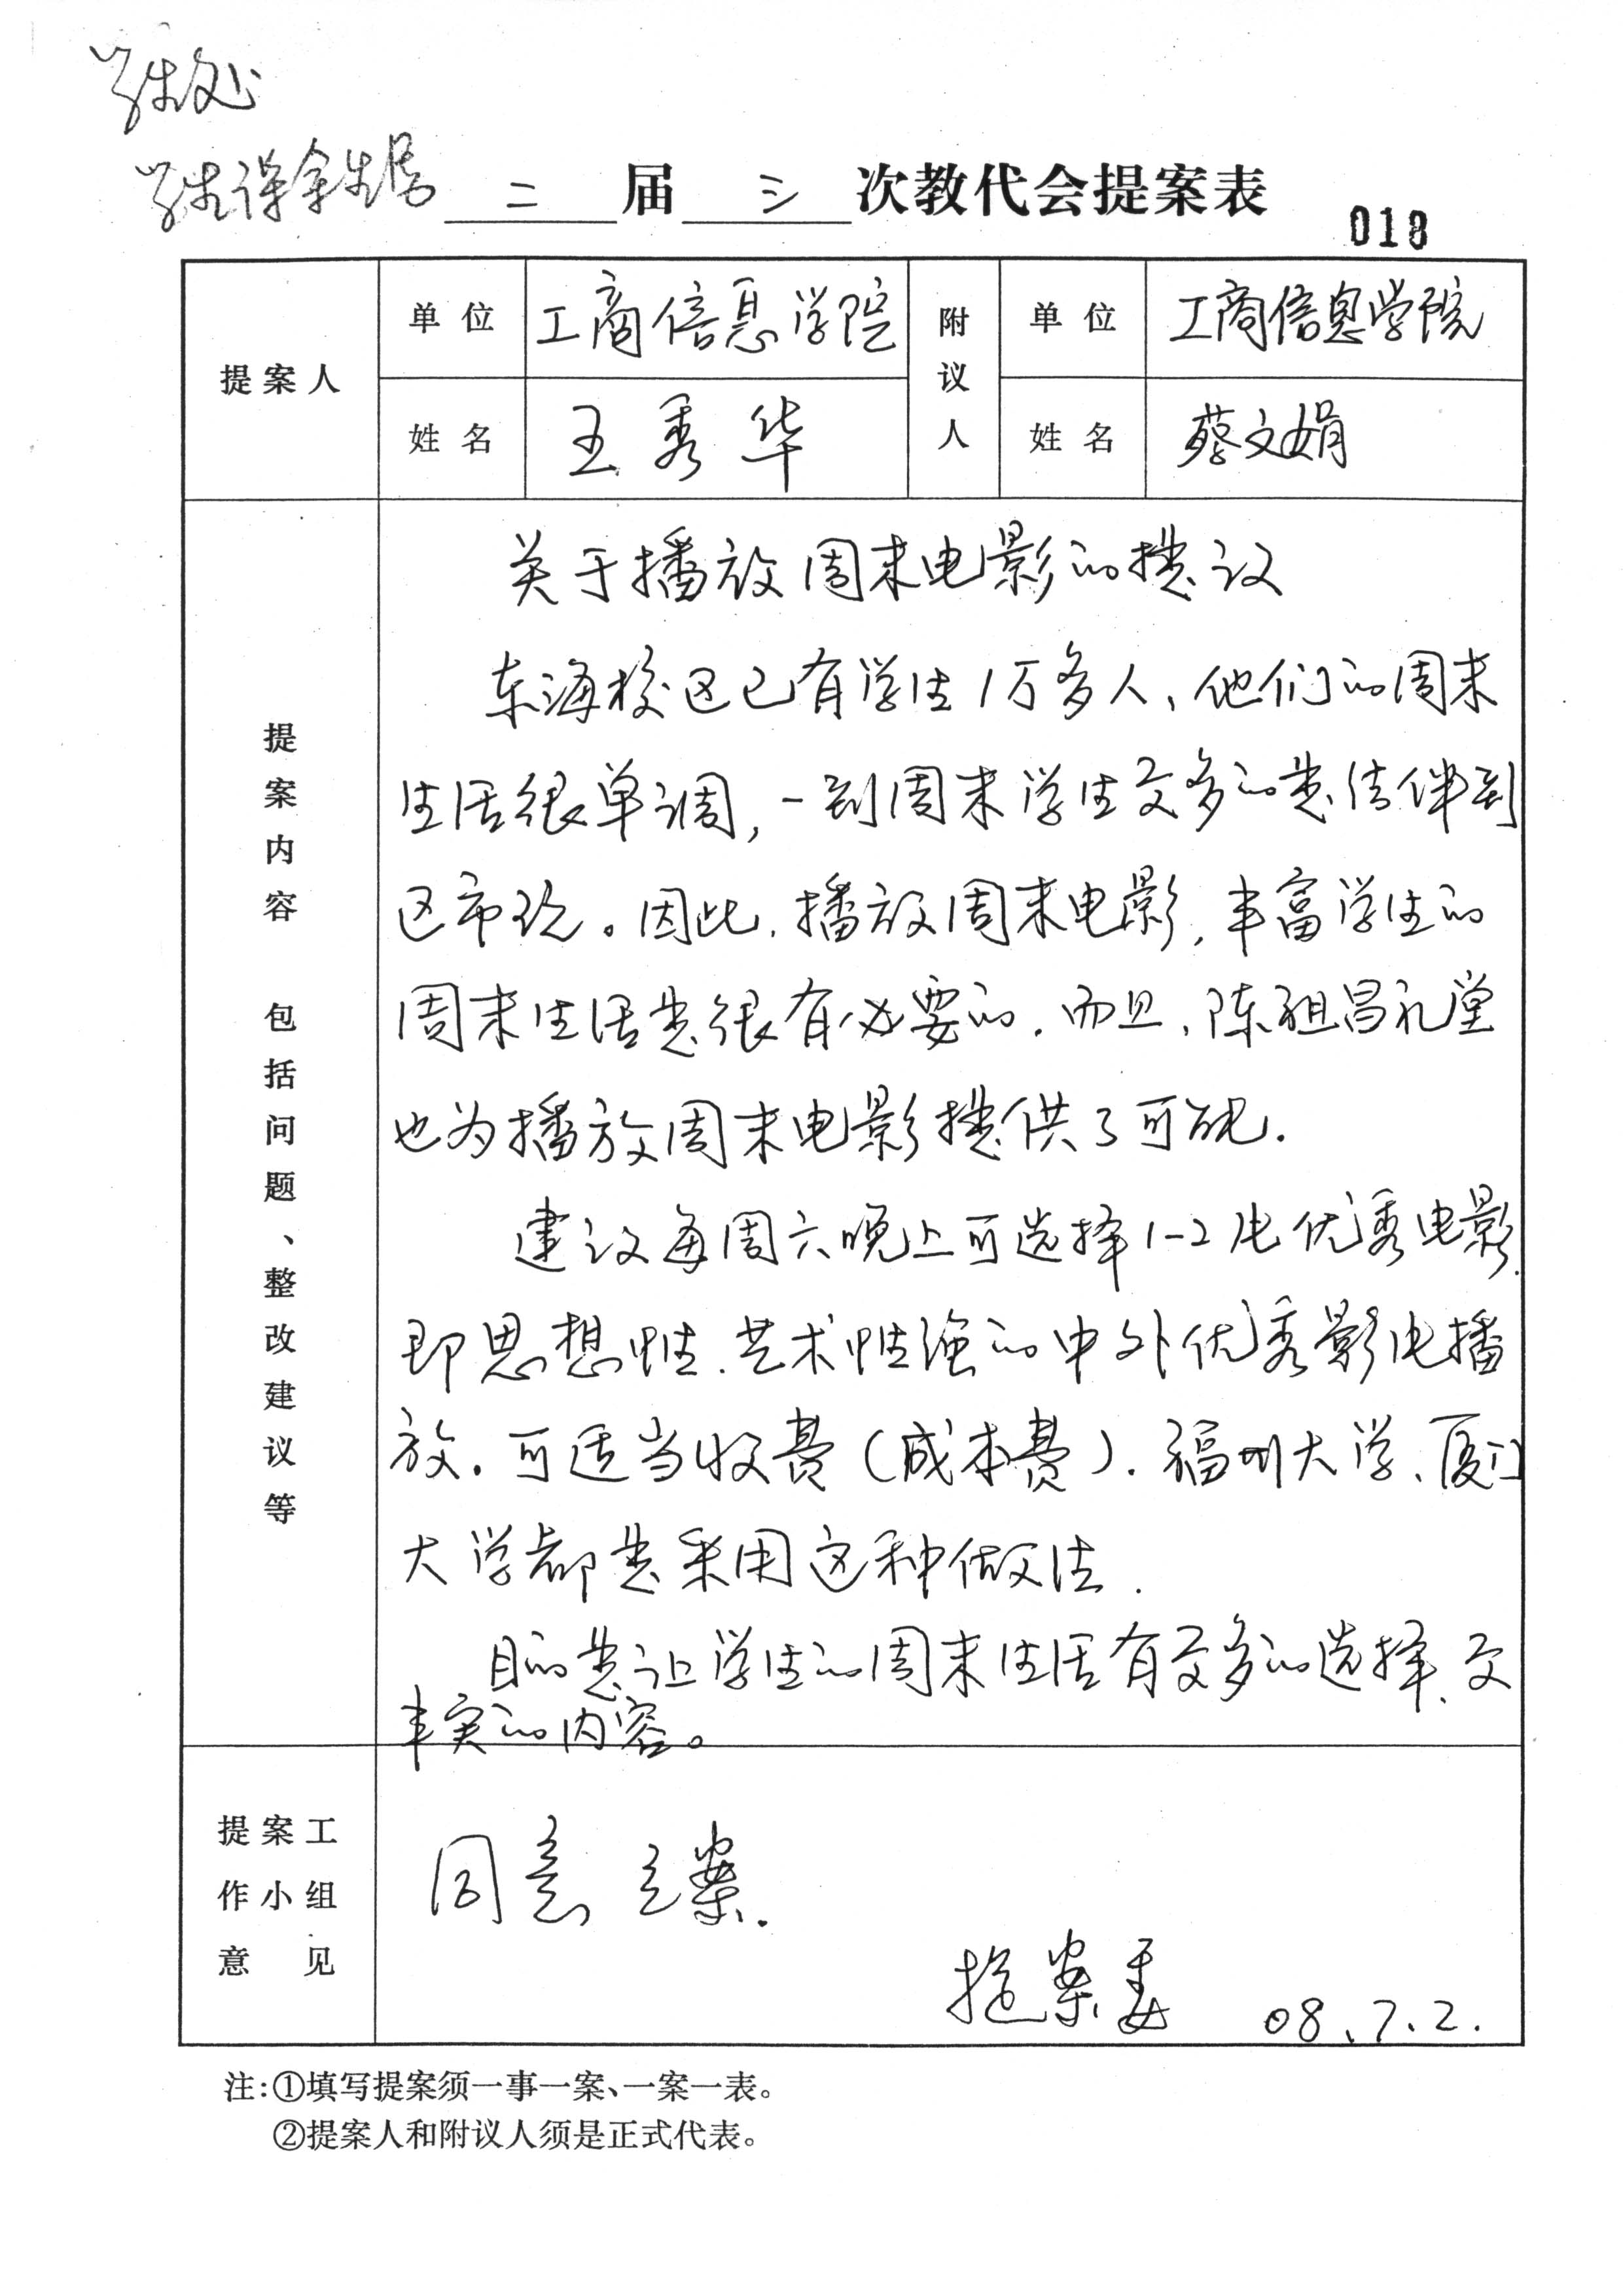 学生处
二届三次教代会提案表
018
提案人 单位 工商信息学院 附议人 单位 工商信息学院
姓名 王秀华 姓名 蔡文娟
提案内容 包括问题、整改建议等
关于播放周末电影的提议
东海校区已有学生1万多人,他们的周末
生活很单调,一到周末学生更多的是结伴到
区市玩。因此,播放周末电影,丰富学生的
周末生活是很有必要的.而且,陈祖昌礼堂
也为播放周末电影提供了可能.
建议每周六晚上可选择1-2片优秀电影,
即思想性、艺术性强的中外优秀影片播
放.可适当收费(成本费).福州大学、厦门
大学都是采用这种做法.
目的是让学生的周末生活有更多的选择、更
丰实的内容。
提案工作小组意见
同意立案.
提案委 08.7.2.
注:①填写提案须一事一案、一案一表。
②提案人和附议人须是正式代表。